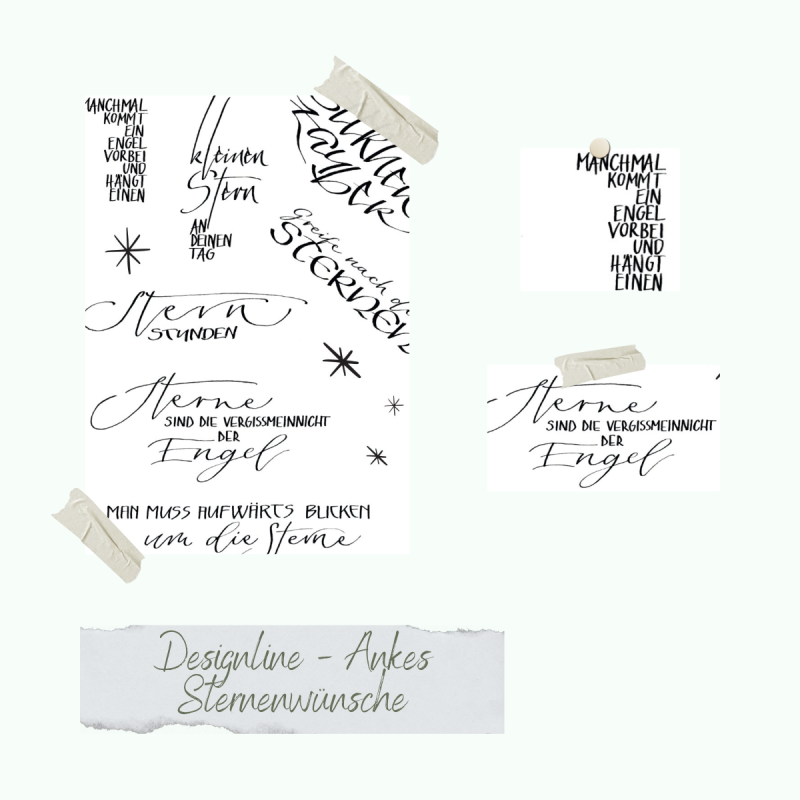 MANCHMAL
KOMMT
EIN
ENGEL
VORBEI
UND
HÄNGT
EINEN
kleinen
Stern
AN
DEINEN
TAG
Greife nach
STERNEN
Stern
STUNDEN
Sterne
SIND DIE VERGISSMEINNICHT
DER
Engel
MAN MUSS AUFWÄRTS BLICKEN
um die Sterne
MANCHMAL
KOMMT
EIN
ENGEL
VORBEI
UND
HÄNGT
EINEN
Sterne
SIND DIE VERGISSMEINNICHT
DER
Engel
Designline - Ankes
Sternenwünsche